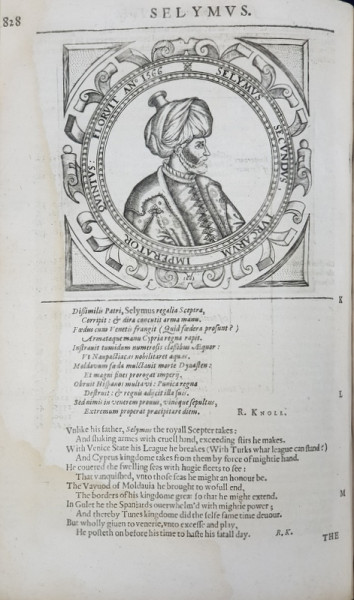 828
SELYMVS.
SELYMVS SECVNDVS TVRCARVM IMPERATOR QVINTVS: FLORVIT AN° 1566
K
Dissimilis Patri, Selymus regalia Sceptra,
Corripit: & dira concutit arma manu.
Fœdus cum Venetis frangit (Quid fœdera prosunt?)
Armataque manu Cypria regna rapit.
Instruit tumidum numerosis classibus Æquor:
Vt Naupactiacas nobilitaret aquas.
Moldavum sæda mulctauit morte Dynasten:
Et magni fines prorogat imperij.
Obruit Hispanos multa vi: Punica regna
Destruit: & regnis adijcit illa suis.
Sed nimis in venerem pronus, vinoque sepultus,
Extremum properat præcipitare diem.
L
R. KNOLL.
Vnlike his father, Selymus the royall Scepter takes:
And shaking armes with cruell hand, exceeding stirs he makes.
With Venice State his League he breakes (With Turks what league can stand?)
And Cyprus kingdome takes from them by force of mightie hand.
He couered the swelling seas with hugie fleets to see:
That vanquished, vnto those seas he might an honour be.
The Vayuod of Moldauia he brought to wofull end,
The borders of his kingdome great so that he might extend.
M
In Gulet he the Spaniards ouerwhelm'd with mightie power;
And thereby Tunes kingdome did the selfe same time deuour.
But wholly giuen to venerie, vnto excesse and play,
He posteth on before his time to hast his fatall day.
R. K.
THE